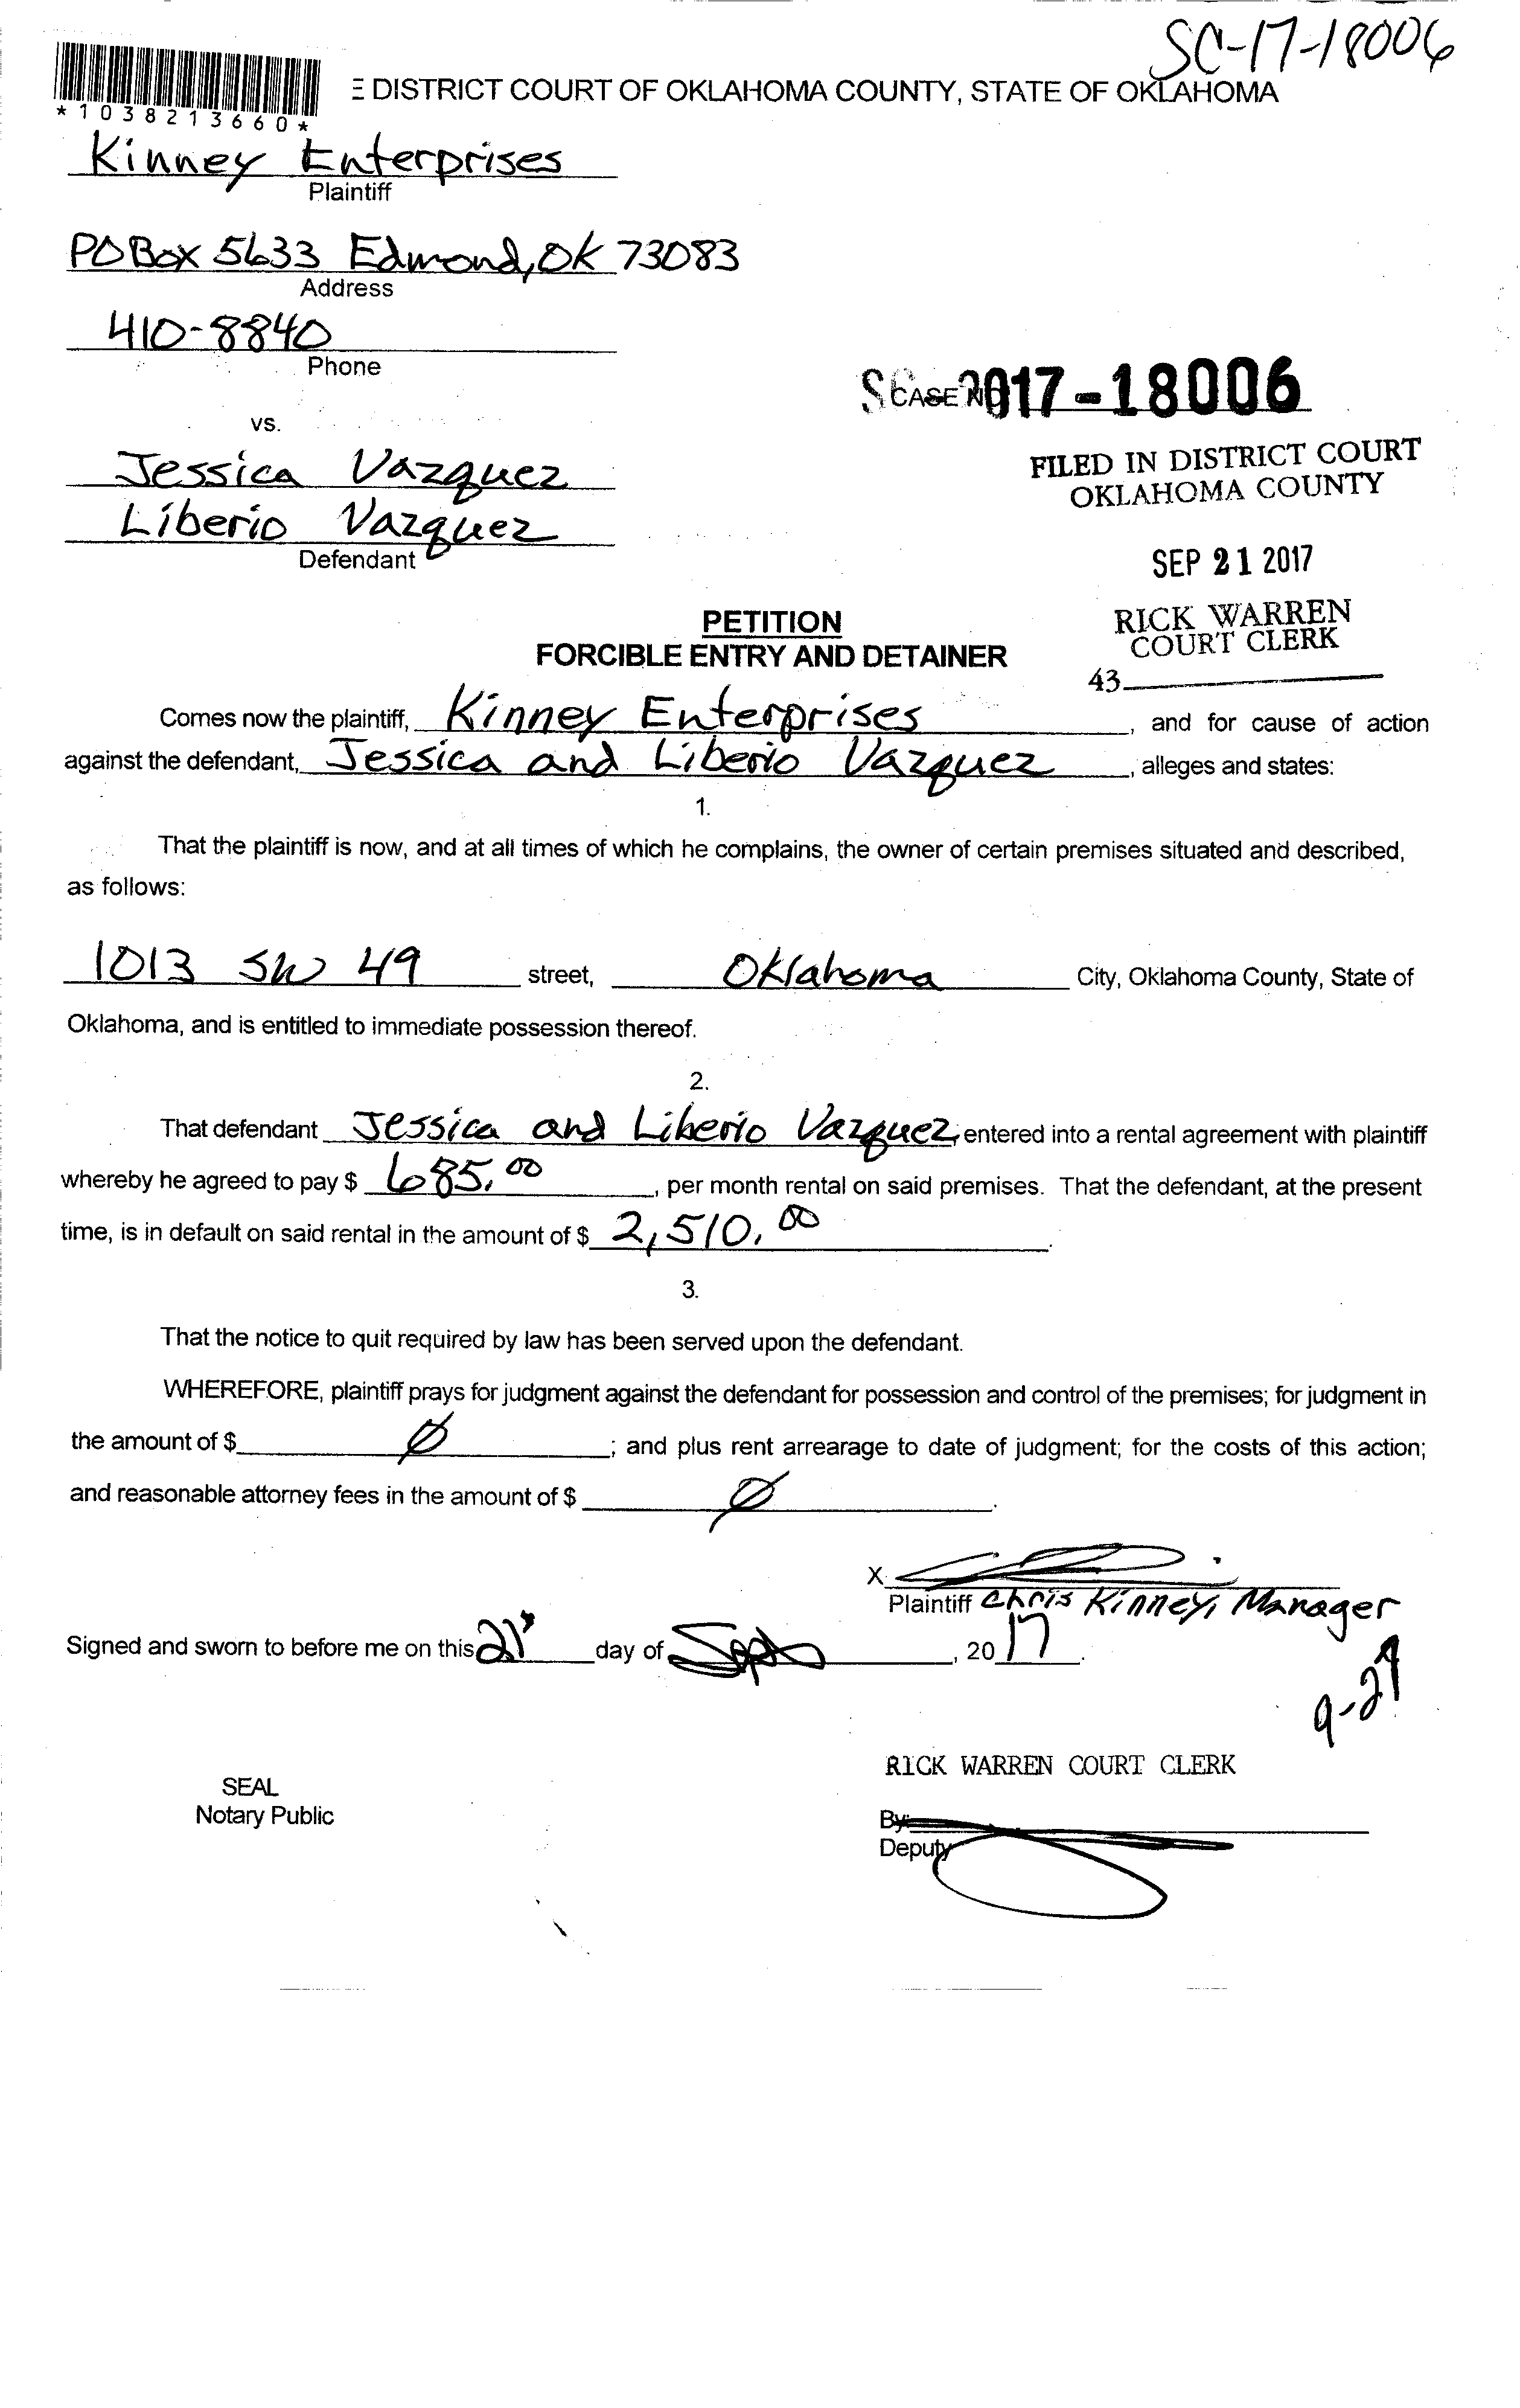 SC-17-18006
E DISTRICT COURT OF OKLAHOMA COUNTY, STATE OF OKLAHOMA
*1038213660*
Kinney Enterprises
Plaintiff
PO Box 5633 Edmond, OK 73083
Address
410-8840
Phone
SC CASE NO 2017-18006
vs.
Jessica Vazquez
Liberio Vazquez
Defendant
FILED IN DISTRICT COURT
OKLAHOMA COUNTY
SEP 21 2017
RICK WARREN
COURT CLERK
43
PETITION
FORCIBLE ENTRY AND DETAINER
Comes now the plaintiff, Kinney Enterprises, and for cause of action
against the defendant, Jessica and Liberio Vazquez, alleges and states:
1.
That the plaintiff is now, and at all times of which he complains, the owner of certain premises situated and described,
as follows:
1013 SW 49 street, Oklahoma City, Oklahoma County, State of
Oklahoma, and is entitled to immediate possession thereof.
2.
That defendant Jessica and Liberio Vazquez, entered into a rental agreement with plaintiff
whereby he agreed to pay $ 685.00, per month rental on said premises. That the defendant, at the present
time, is in default on said rental in the amount of $ 2,510.00.
3.
That the notice to quit required by law has been served upon the defendant.
WHEREFORE, plaintiff prays for judgment against the defendant for possession and control of the premises; for judgment in
the amount of $ Ø; and plus rent arrearage to date of judgment; for the costs of this action;
and reasonable attorney fees in the amount of $ Ø.
X
Plaintiff Chris Kinney, Manager
Signed and sworn to before me on this 21 day of Sept, 2017.
9-29
RICK WARREN COURT CLERK
SEAL
Notary Public
By:
Deputy